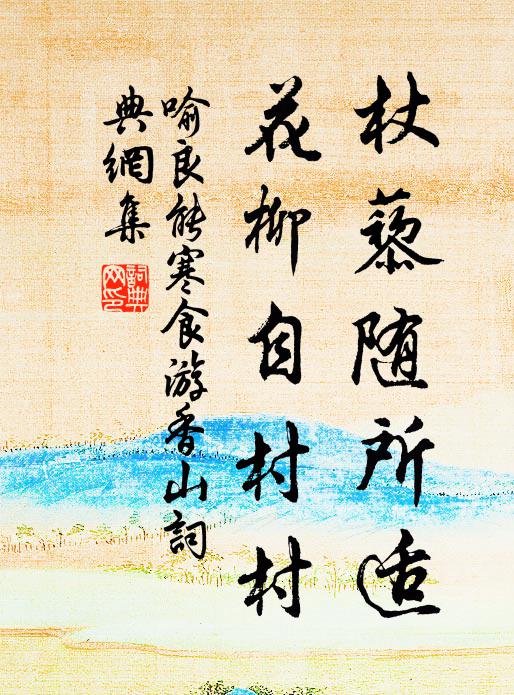 杖藜随所适
花柳自村村
喻良能寒食游香山詞
典網集
詞典
网印